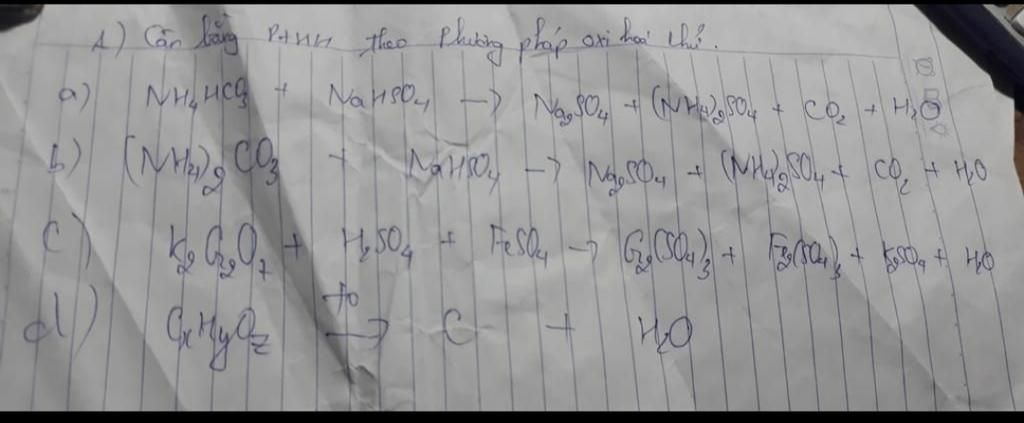 1) Cân bằng PTHH theo phương pháp oxi hoá khử.
a) NH4HCO3 + NaHSO4 → Na2SO4 + (NH4)2SO4 + CO2 + H2O
b) (NH4)2CO3 + NaHSO4 → Na2SO4 + (NH4)2SO4 + CO2 + H2O
c) K2Cr2O7 + H2SO4 + FeSO4 → Cr2(SO4)3 + Fe2(SO4)3 + K2SO4 + H2O
d) CxHyOz t° → C + H2O